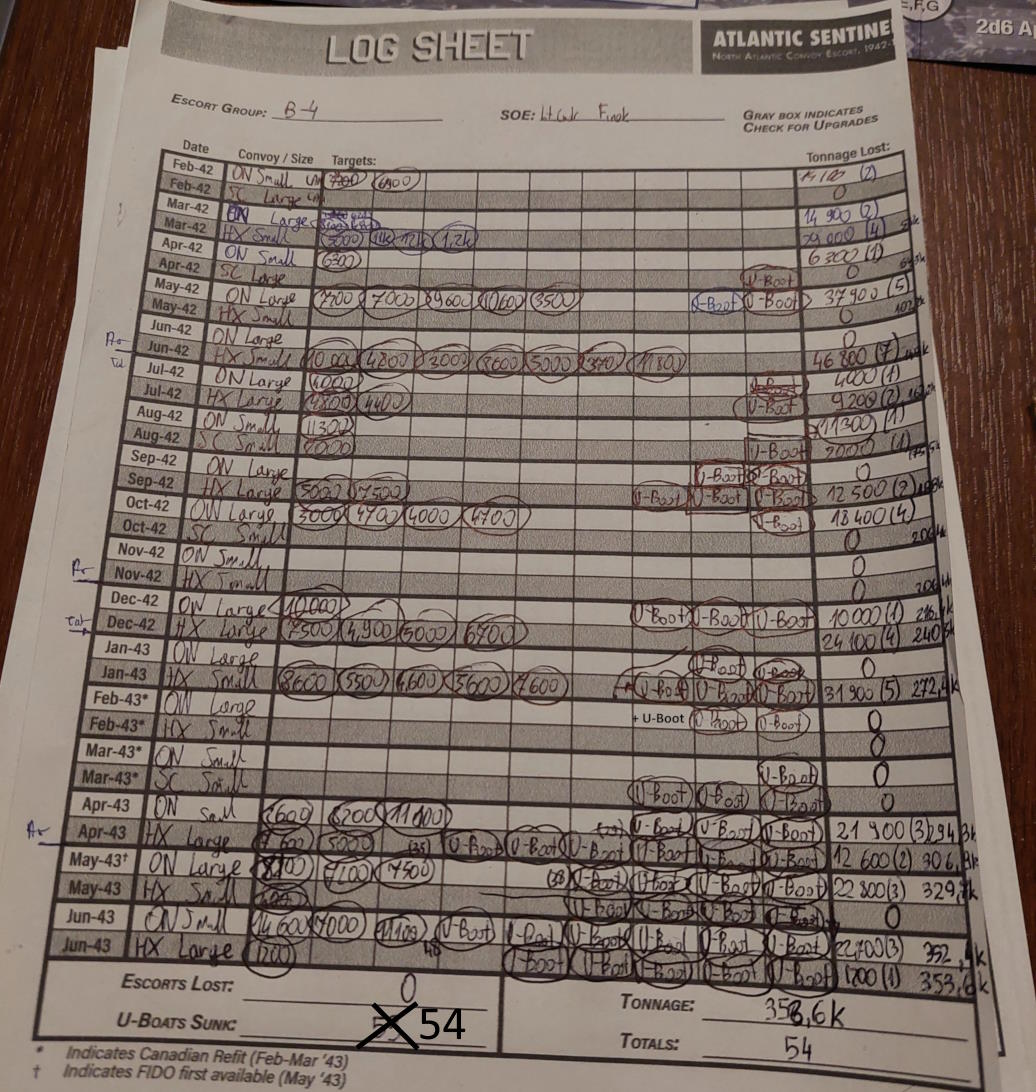 E,F,G
2d6 A
LOG SHEET
ATLANTIC SENTINE
NORTH ATLANTIC CONVOY ESCORT, 1942-
ESCORT GROUP: B-4
SOE: Lt Cmdr
GRAY BOX INDICATES
CHECK FOR UPGRADES
Date Convoy / Size Targets: Tonnage Lost:
Feb-42 ON Small 6900 (2)
Feb-42 SC Large 0
Mar-42 ON Large 14 900 (2)
Mar-42 HX Small 5000 11k 12k 1,2k 29 000 (4)
Apr-42 ON Small 6300 6 300 (1)
Apr-42 SC Large U-Boot 0
May-42 ON Large 7200 7000 9600 10600 3500 U-Boot U-Boot 37900 (5)
May-42 HX Small 0
Jun-42 ON Large 0
Jun-42 HX Small 10 000 4800 3000 8600 5000 11800 46 800 (7)
Jul-42 ON Large 4000 4000 (1)
Jul-42 HX Large 4800 4400 U-Boot 9200 (2)
Aug-42 ON Small 11300 11300 (1)
Aug-42 SC Small 2000 U-Boot 2000 (1)
Sep-42 ON Large U-Boot U-Boot 0
Sep-42 HX Large 5000 7500 U-Boot U-Boot U-Boot 12 500 (2)
Oct-42 ON Large 3000 4700 4000 4700 U-Boot 18 400 (4)
Oct-42 SC Small 0
Nov-42 ON Small 0
Nov-42 HX Small 0
Dec-42 ON Large 10,000 U-Boot U-Boot U-Boot 10 000 (1)
Dec-42 HX Large 7500 4,900 5000 6700 24 100 (4) 240
Jan-43 ON Large U-Boot U-Boot 0
Jan-43 HX Small 8600 5500 4600 5600 7600 U-Boot U-Boot U-Boot 31 900 (5) 272,4k
Feb-43* ON Large + U-Boot U-Boot U-Boot 0
Feb-43* HX Small 0
Mar-43* ON Small U-Boot 0
Mar-43* SC Small U-Boot U-Boot U-Boot 0
Apr-43 ON Small 2600 8200 11 100 U-Boot U-Boot U-Boot 21 900 (3) 294,3k
Apr-43 HX Large 7600 5000 U-Boot U-Boot U-Boot U-Boot U-Boot U-Boot 12 600 (2) 306,9k
May-43† ON Large 7100 7500 U-Boot U-Boot U-Boot U-Boot 22 800 (3) 329,7k
May-43 HX Small U-Boot U-Boot U-Boot U-Boot 0
Jun-43 ON Small 14 600 7000 1100 U-Boot U-Boot U-Boot U-Boot U-Boot U-Boot 22,700 (3) 352,4k
Jun-43 HX Large 1200 U-Boot U-Boot U-Boot U-Boot U-Boot 1200 (1) 353,6k
ESCORTS LOST: 0
U-BOATS SUNK: 54
TONNAGE: 353,6k
TOTALS: 54
* Indicates Canadian Refit (Feb-Mar '43)
† Indicates FIDO first available (May '43)